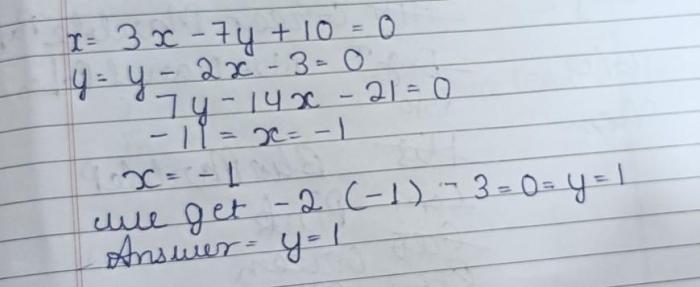 x = 3x - 7y + 10 = 0
y = y - 2x - 3 = 0
7y - 14x - 21 = 0
- 11 = x = -1
x = -1
we get -2 (-1) - 3 = 0 = y = 1
Answer = y = 1